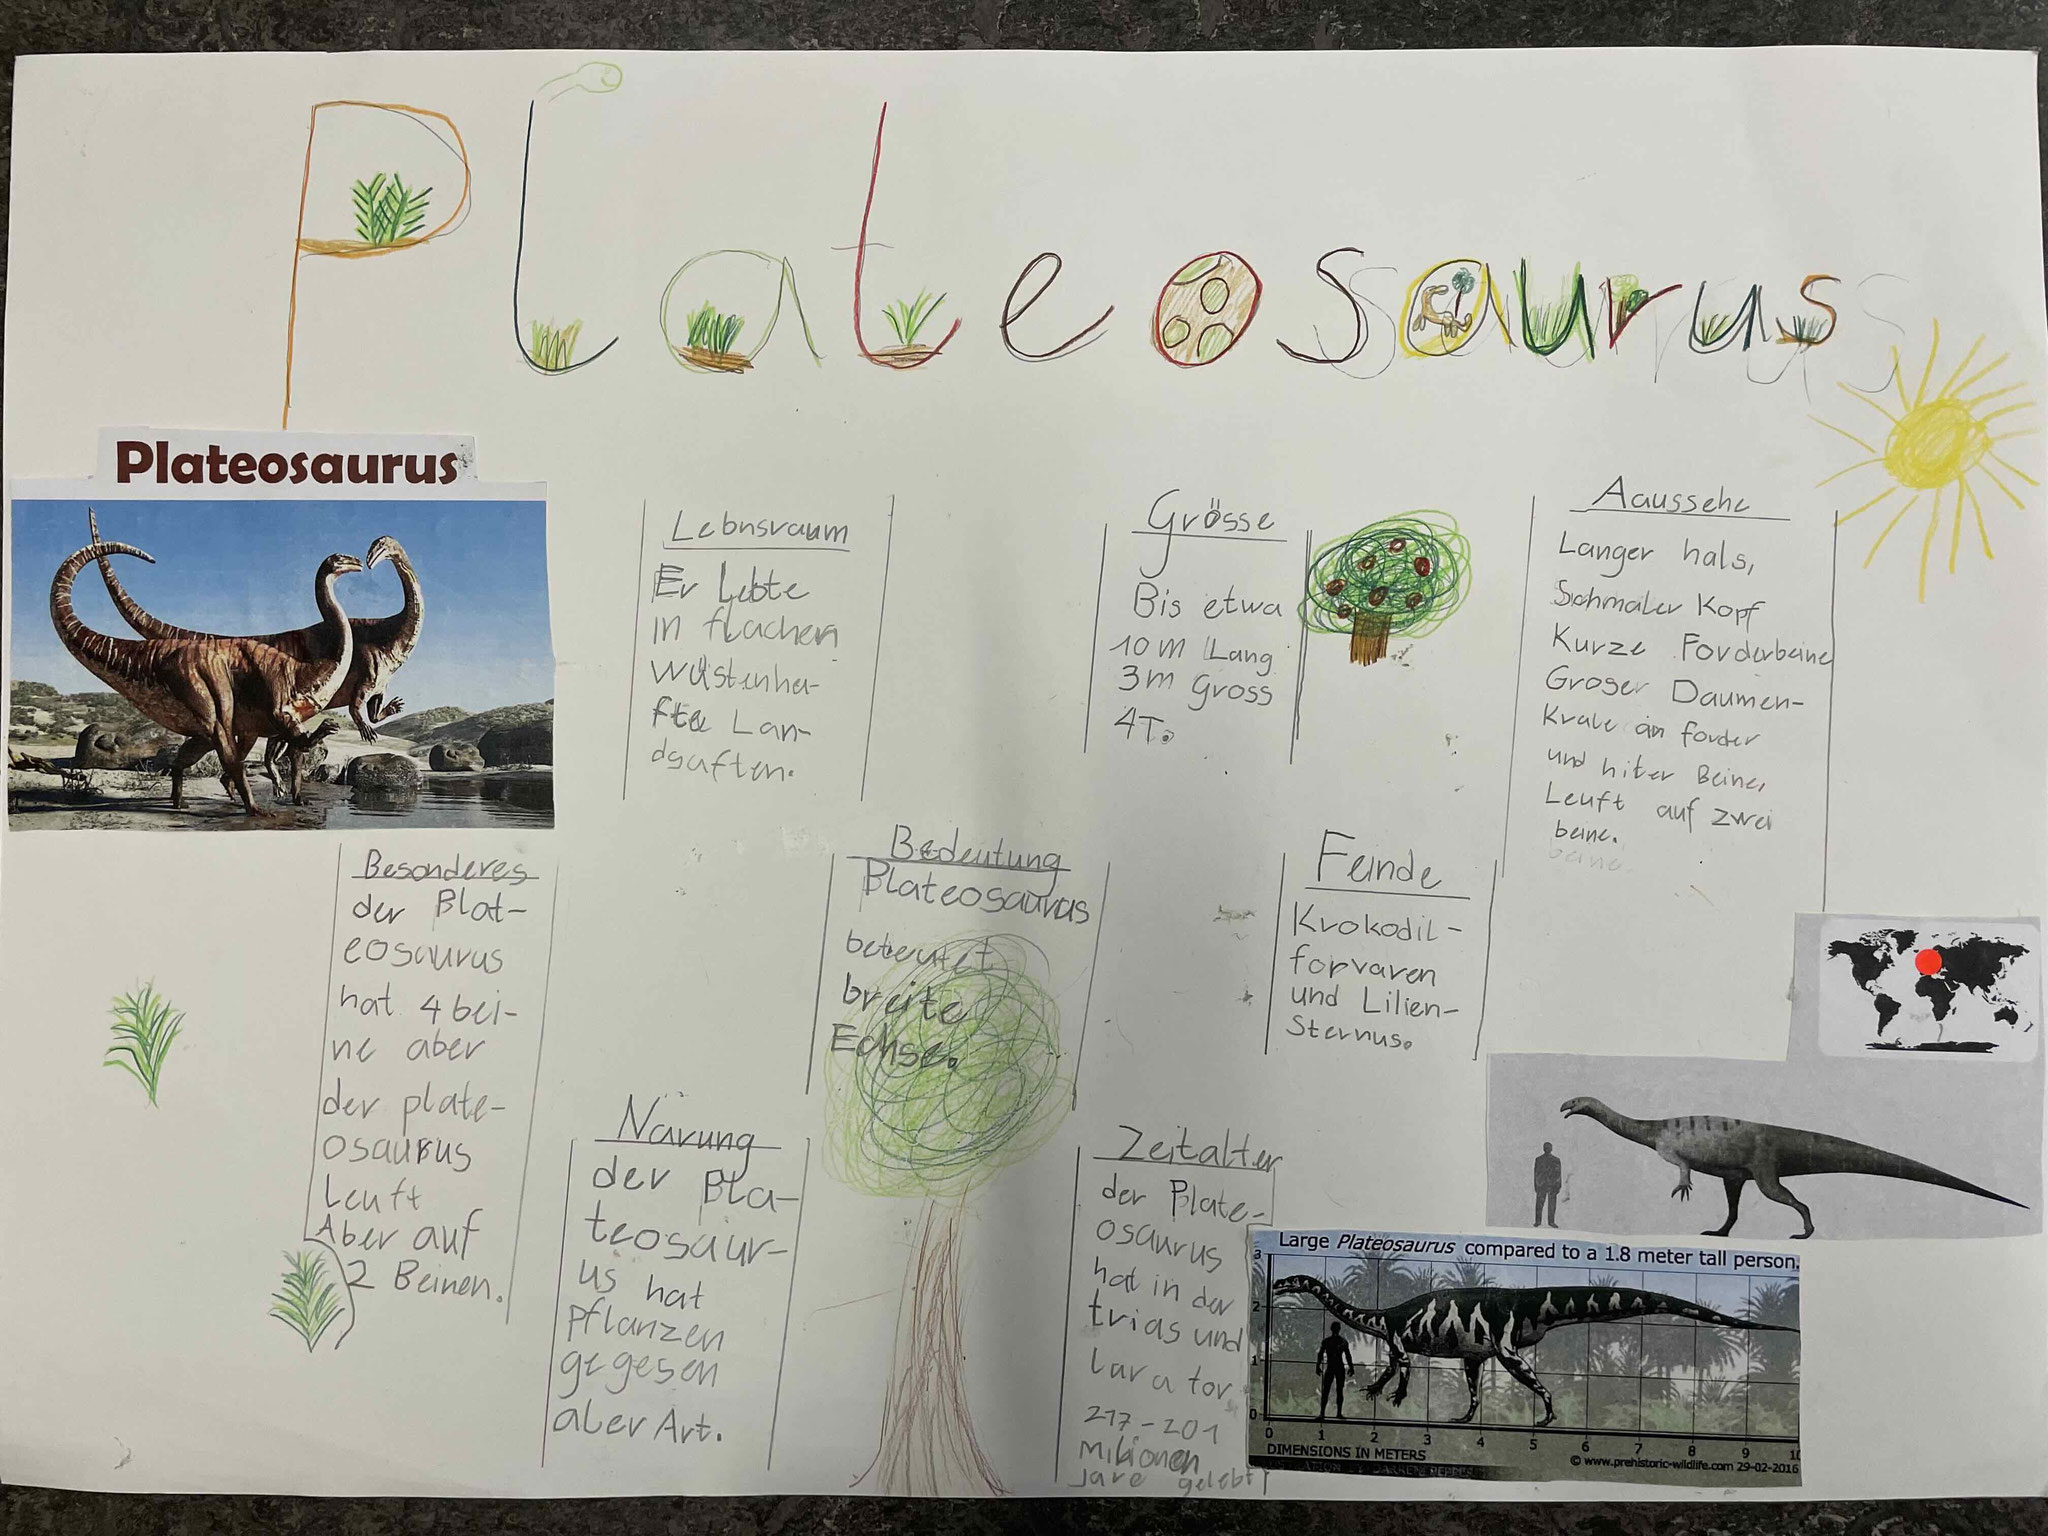 Plateosaurus
Plateosaurus
Lebnsraum
Er Lebte
in flachen
wüstenha-
fte Lan-
dsaften.
Grösse
Bis etwa
10 m Lang
3 m Gross
4T.
Aaussehe
Langer hals,
Schmaler Kopf
Kurze Forderbeine
Groser Daumen-
Krale an forder
und hiter Beine,
Leuft auf zwei
beine.
beine.
Besonderes
der Plat-
eosaurus
hat 4 bei-
ne aber
der plate-
osaurus
Leuft
Aber auf
2 Beinen.
Bedeutung
Plateosaurus
beteutet
breite
Echse.
Feinde
Krokodil-
forvaren
und Lilien-
Sternus.
Narung
der Pla-
teosaur-
us hat
Pflanzen
gegesen
aler Art.
Zeitalter
der Plate-
osaurus
hat in der
trias und
Lar a tor
217-201
Milionen
jare gelebt
Large Plateosaurus compared to a 1.8 meter tall person.
3
2
1
0
0 1 2 3 4 5 6 7 8 9 10
DIMENSIONS IN METERS
© www.prehistoric-wildlife.com 29-02-2016